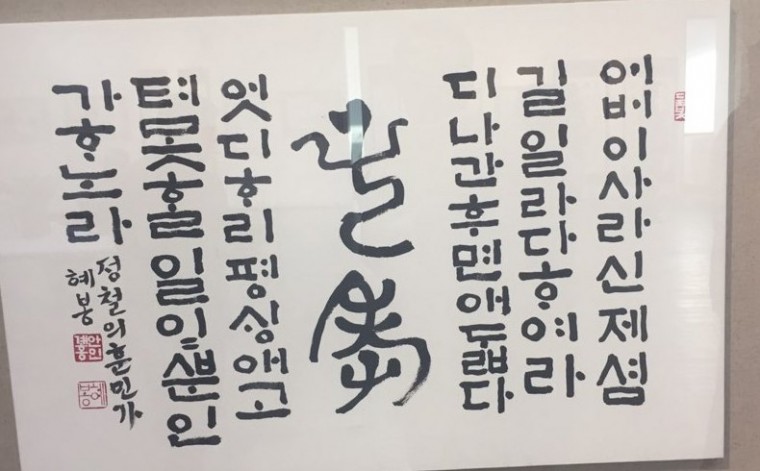 어버이사라신제셤
길일라다ᄒᆞ여라
디나간후면애ᄃᆞᆲ다
엇디ᄒᆞ리평ᄉᆡᆼ애고
텨못ᄒᆞᆯ일잇ᄲᅮᆫ인
가ᄒᆞ노라
정철의훈민가
혜봉